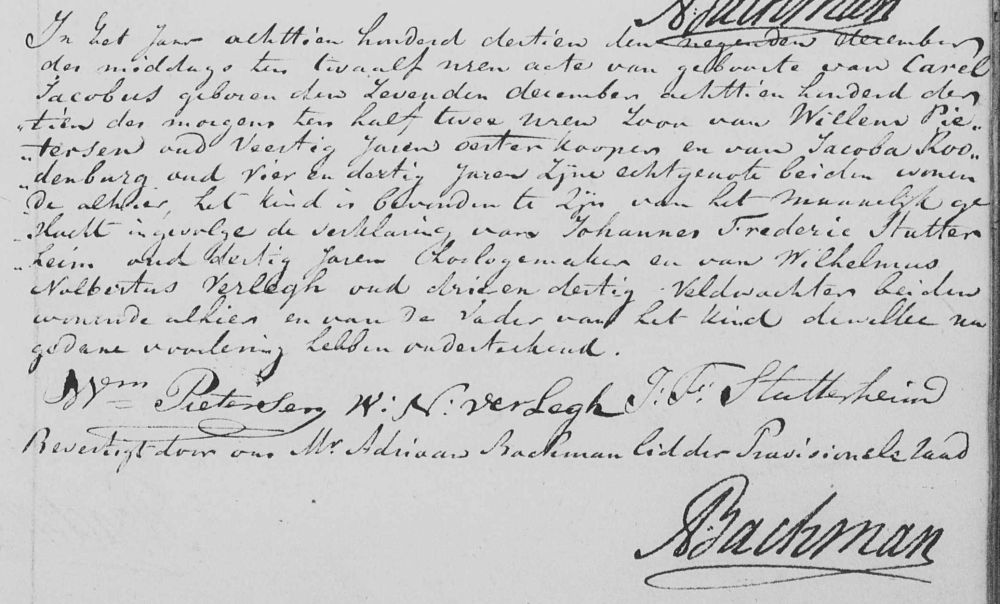 A: Bachman
In het Jaar achttien honderd dertien den negenden december
des middags ten twaalf uren acte van geboorte van Carel
Jacobus geboren den Zevenden december achttien honderd der
„tien des morgens ten half twee uren Zoon van Willem Pie„
„tersen oud Veertig Jaren oesterkooper en van Jacoba Roo„
„denburg oud Vier en dertig Jaren Zijne echtgenote beiden wonen
de alhier, het kind is bevonden te Zijn van het Mannelijk ge
slacht ingevolge de verklaring van Johannes Frederic Stutter
„heim oud dertig Jaren Horlogemaker en van Wilhelmus
Nolbertus Verlegh oud drie en dertig Veldwachter beiden
wonende alhier en van de Vader van het kind dewelke na
gedane voorlezing hebben ondertekend.
Wem Pietersen W: N: verLegh J: F: Stutterheim
Bevestigt door ons Mr Adriaan Bachman lid der Provisionele raad
A:Bachman